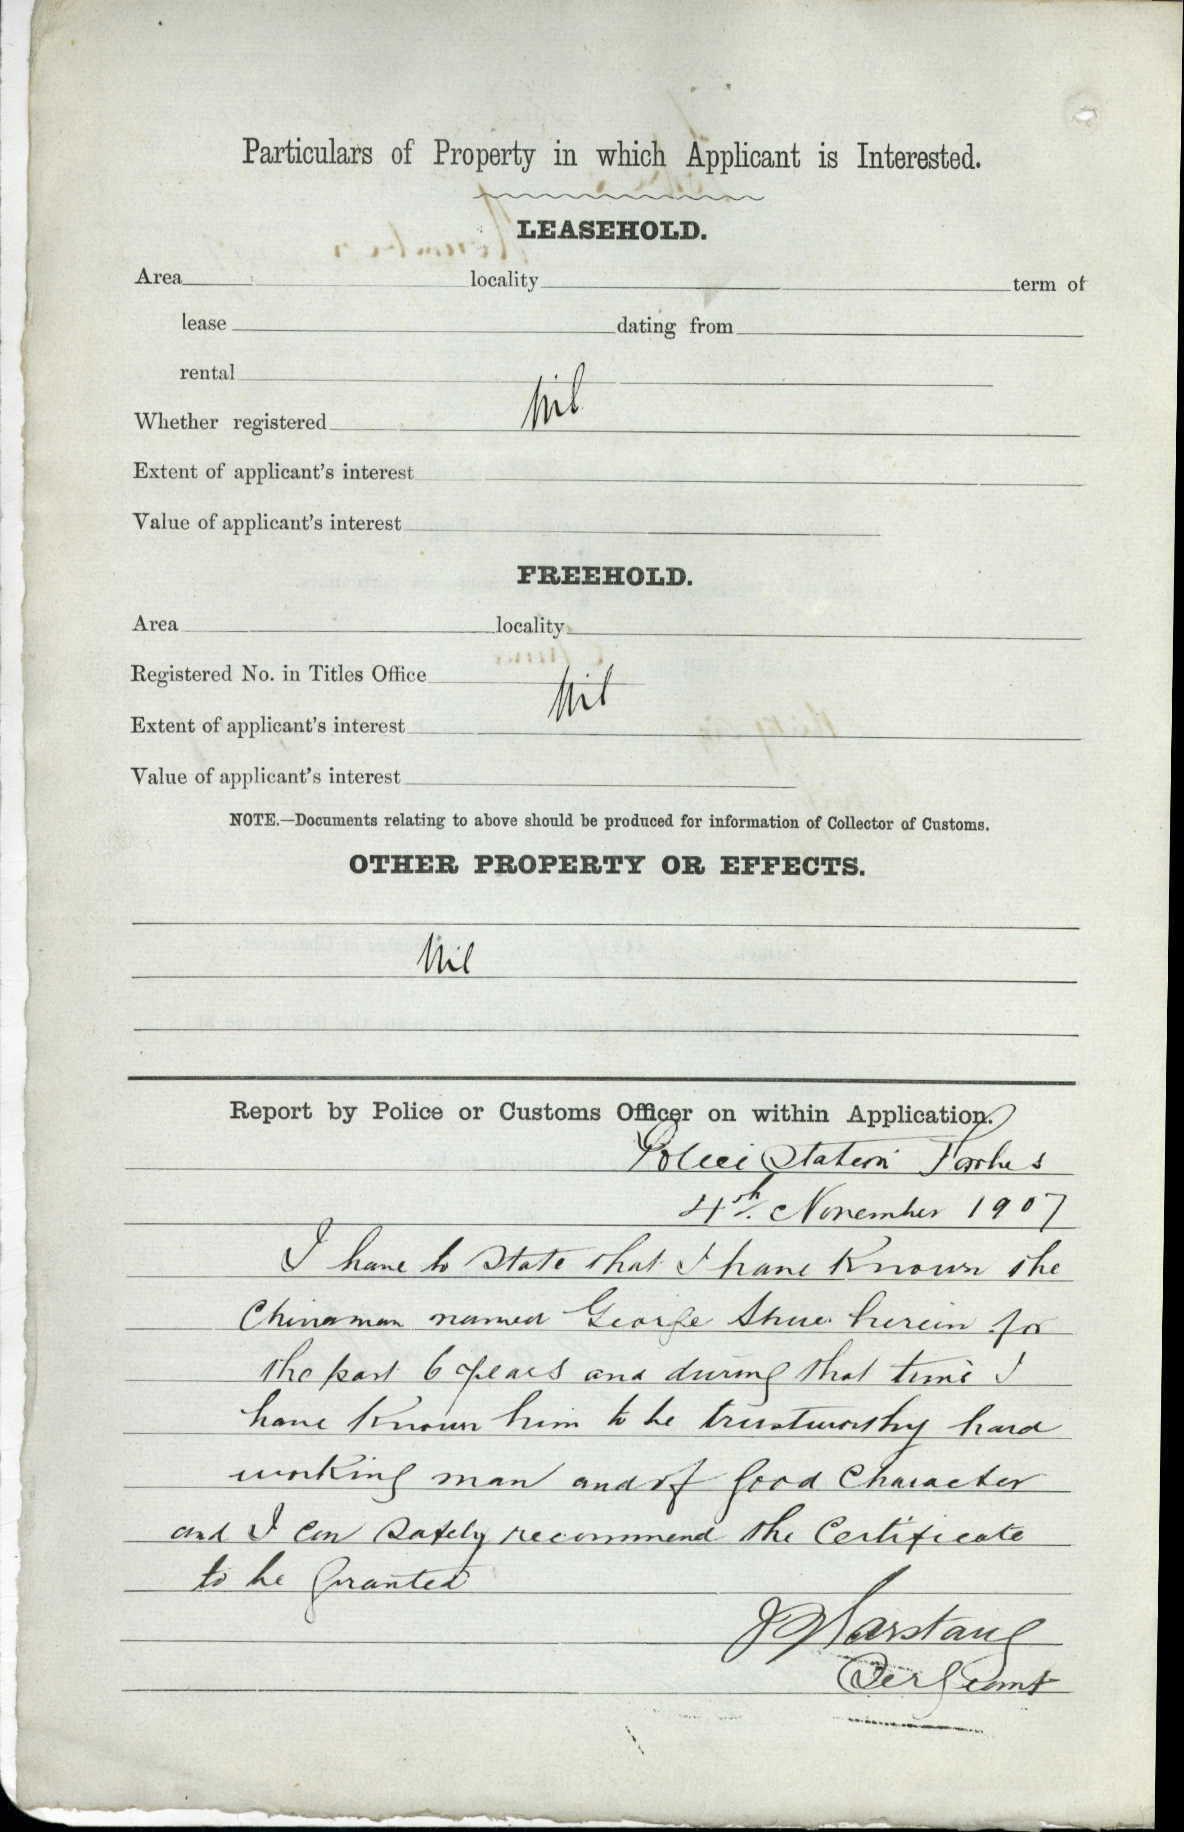 Particulars of Property in which Applicant is Interested.
LEASEHOLD.
Area locality term of
lease dating from
rental
Nil
Whether registered
Extent of applicant's interest
Value of applicant's interest
FREEHOLD.
Area locality
Registered No. in Titles Office
Nil
Extent of applicant's interest
Value of applicant's interest
NOTE.—Documents relating to above should be produced for information of Collector of Customs.
OTHER PROPERTY OR EFFECTS.
Nil
Report by Police or Customs Officer on within Application.
Police Station Forbes
4th. November 1907
I have to state that I have known the
Chinaman named George Shue herein for
the past 6 years and during that time I
have known him to be trustworthy hard
working man and of good Character
and I can safely recommend the Certificate
to be granted
J Garstang
Sergeant